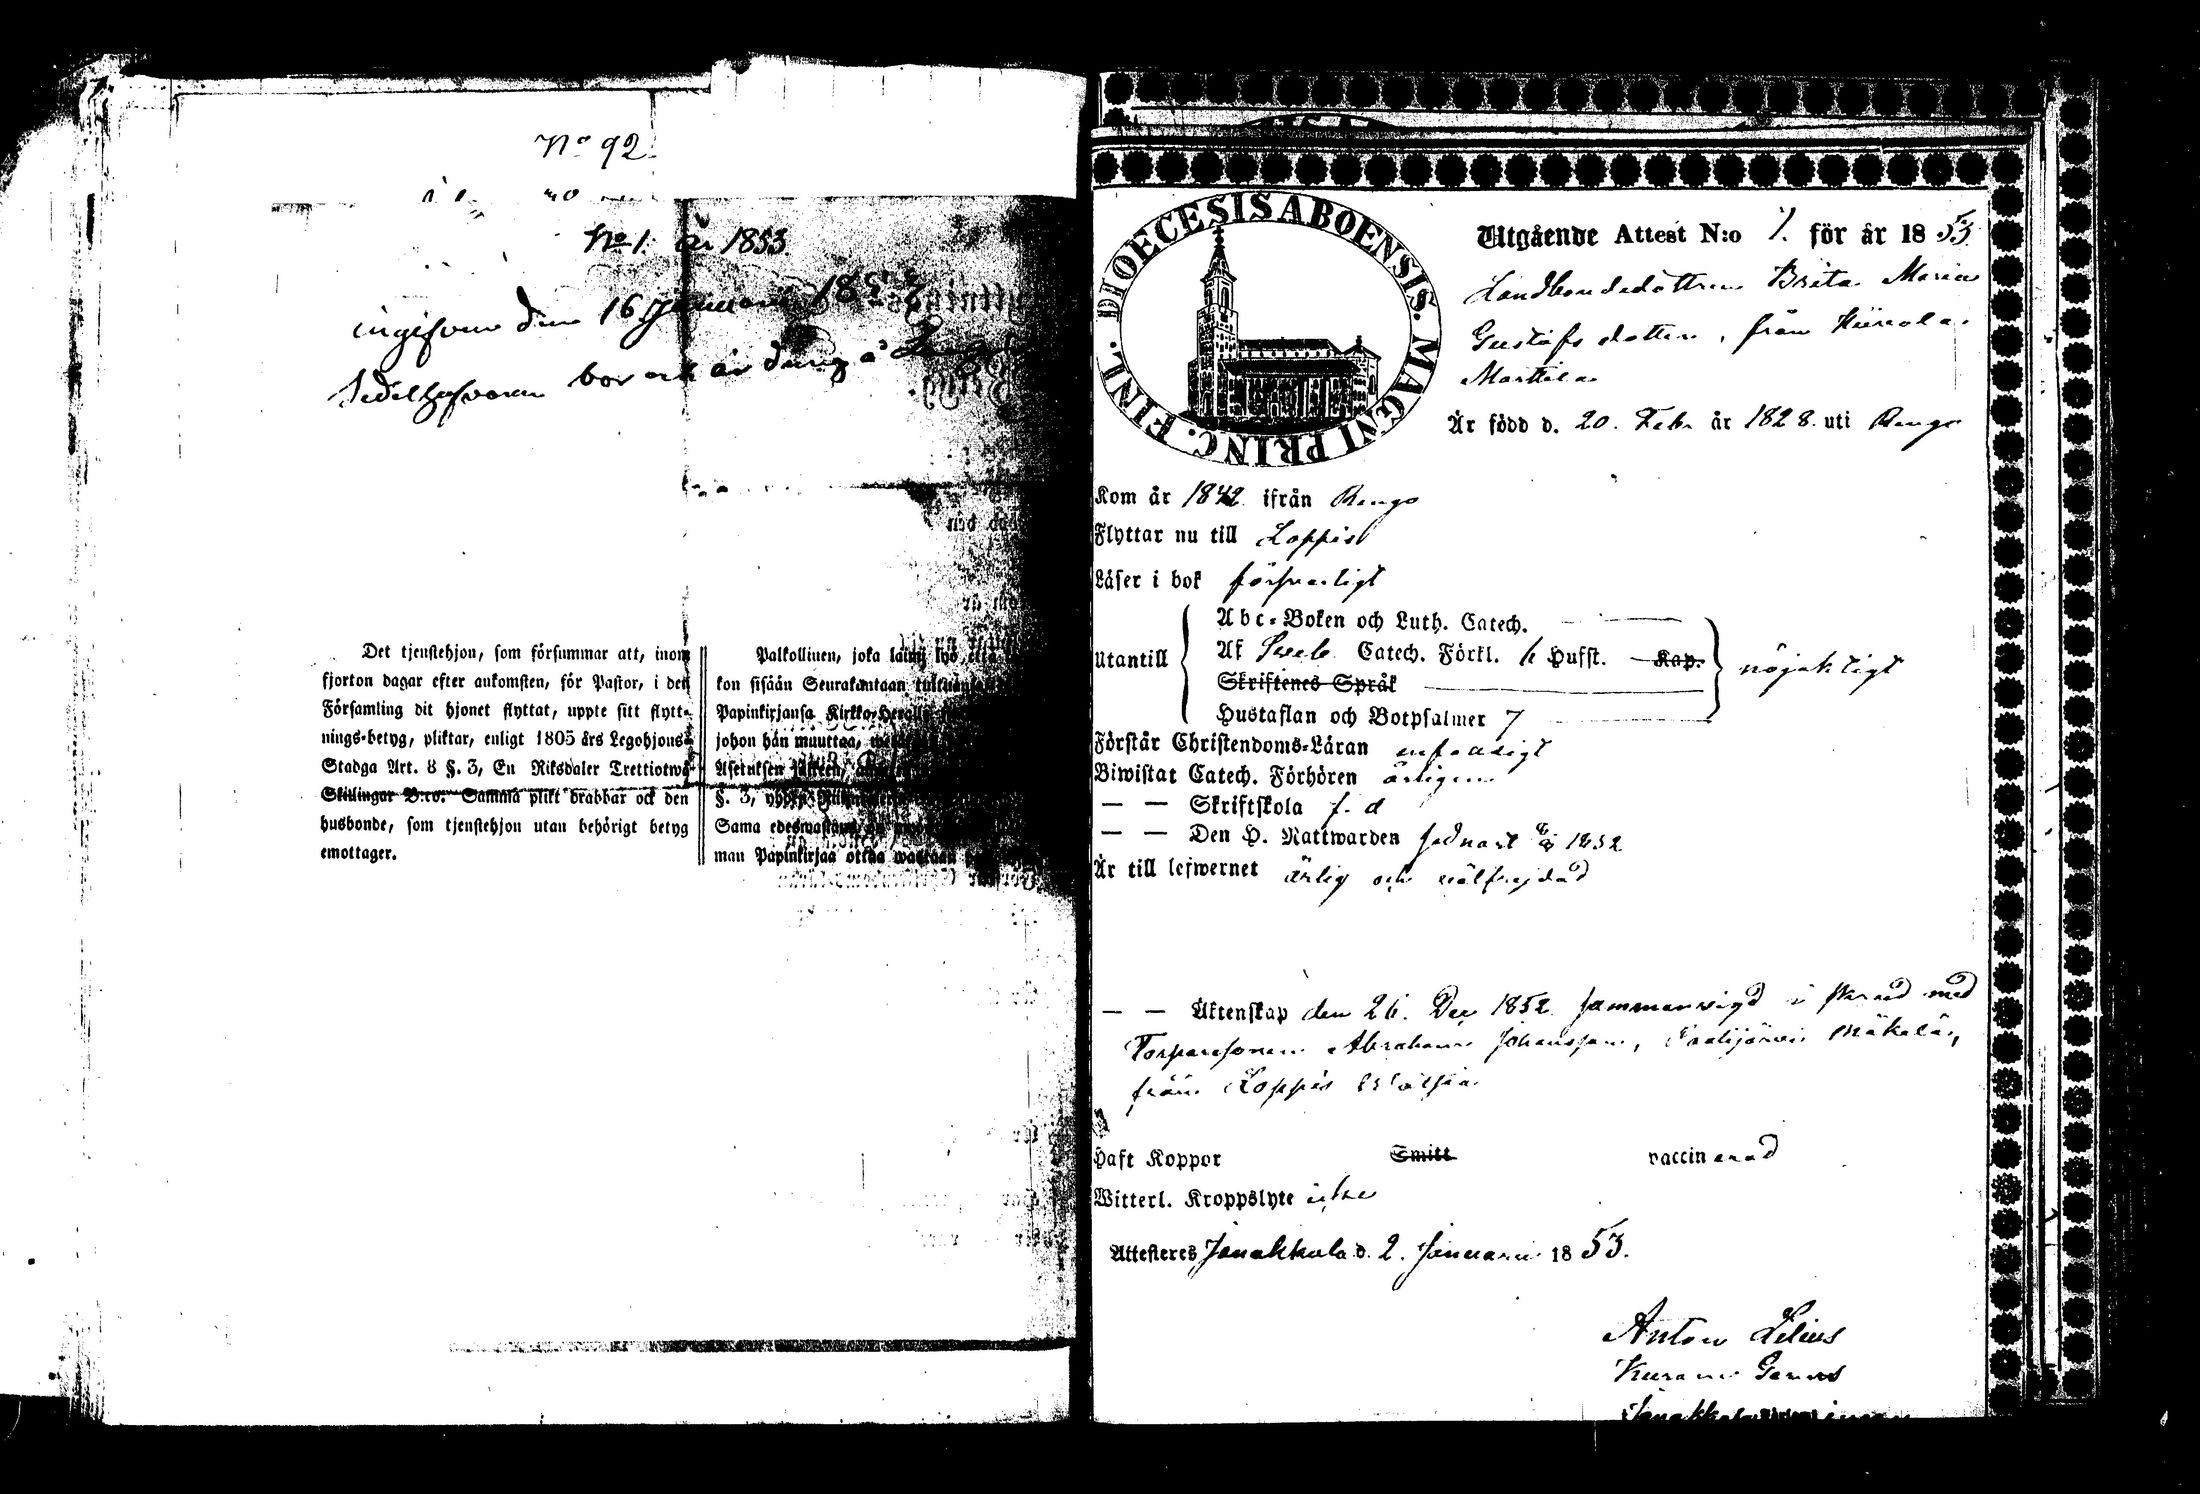 No 92
No 1. år 1853
ingifven den 16 Januari 1853
Sedelhafvaren bor och är dräng å
Det tjenstehjon, som försummar att, inom
fjorton dagar efter ankomsten, för Pastor, i den
Församling dit hjonet flyttat, uppte sitt flytt-
nings-betyg, pliktar, enligt 1805 års Legohjons-
Stadga Art. 8 §. 3, En Riksdaler Trettiotwå
Skillingar B:co. Samma plikt drabbar ock den
husbonde, som tjenstehjon utan behörigt betyg
emottager.
Palkollinen, joka laimi lyö, että
kon sisään Seurakuntaan
Papinkirjansa Kirkko-Herralle
johon hän muuttaa,
Asetuksen
§. 3,
Sama edeswastaus
man Papinkirjaa ottaa wastaan
DIOECESIS ABOENSIS. MAGNI PRINC. FINL.
Utgående Attest N:o 1. för år 1853
Landbondedottren Brita Maria
Gustafsdotter, från
Marttila
Är född d. 20. Febr år 1828. uti Rengo
Kom år 1842 ifrån Rengo
Flyttar nu till Loppis
Läser i bok försvarligt
utantill
Abc-Boken och Luth. Catech.
Af Sveb. Catech. Förkl. 6 Hufst. Kap.
Skriftenes Språk
Hustaflan och Botpsalmer 7
nöjaktigt
Förstår Christendoms-Läran enfaldigt
Biwistat Catech. Förhören årligen
— — Skriftskola f. d
— — Den H. Nattwarden sednast 1852
Är till lefwernet ärlig och välfrejdad
— — Äktenskap den 26. Dec 1852 sammanvigd med
Torparesonen Abraham Johansson, Mäkelä,
från Loppis
Haft Koppor Smitt vaccinerad
Witterl. Kroppslyte icke
Attesteres Janakkala d. 2. Januari 1853.
Anton Lilius